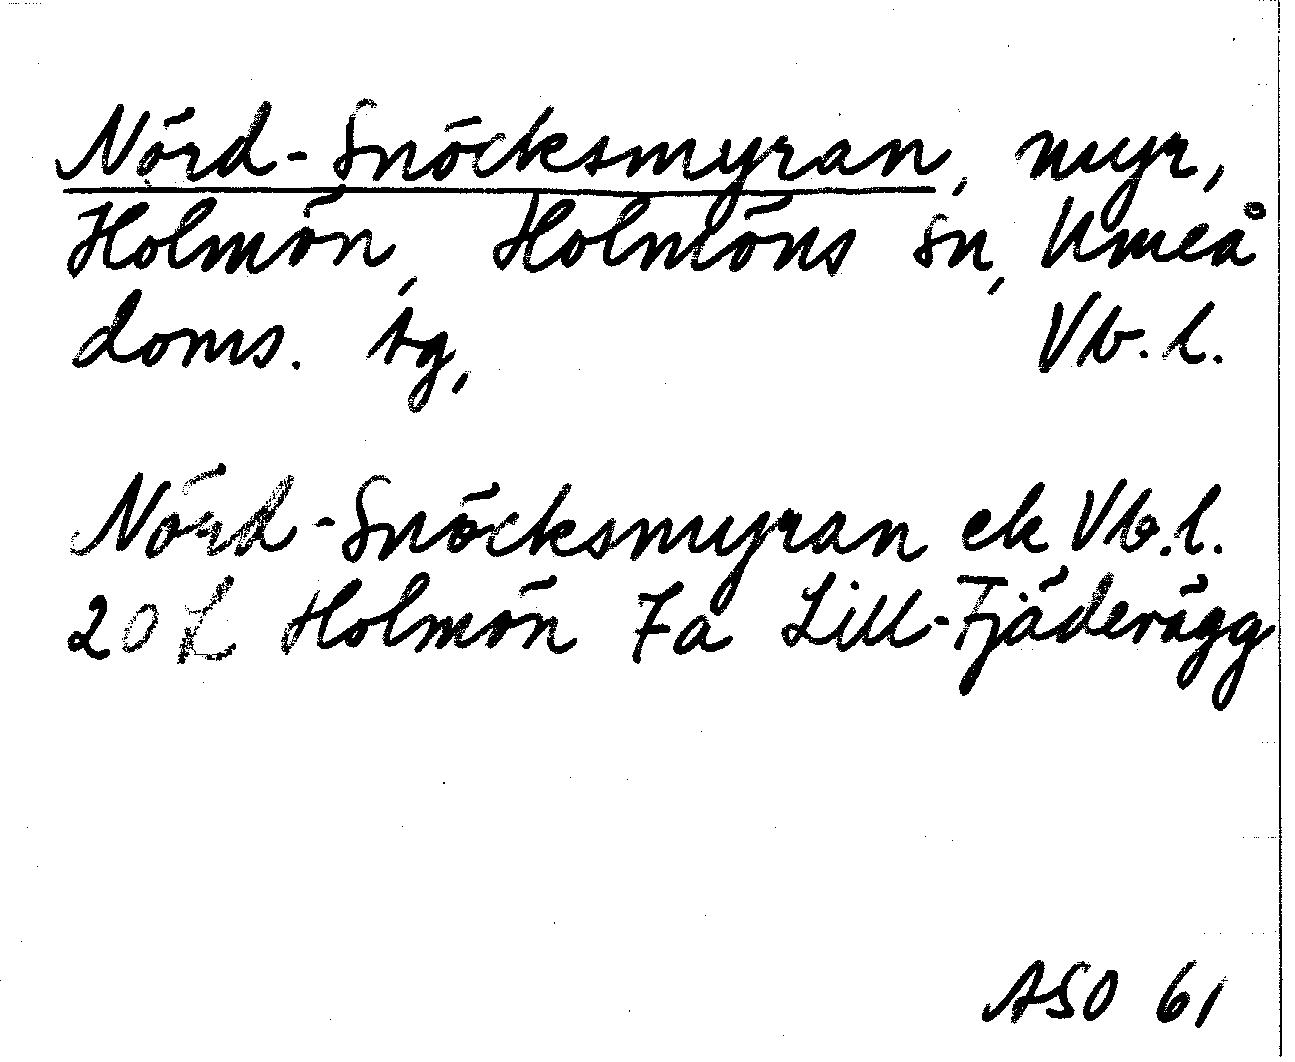 Nörd-Snöcksmyran, myr,
Holmön, Holmöns sn, Umeå
doms. tg, Vb. l.
Nörd-Snöcksmyran ek Vb. l.
20 L Holmön 7a Lill-Fjäderägg
ASO 61